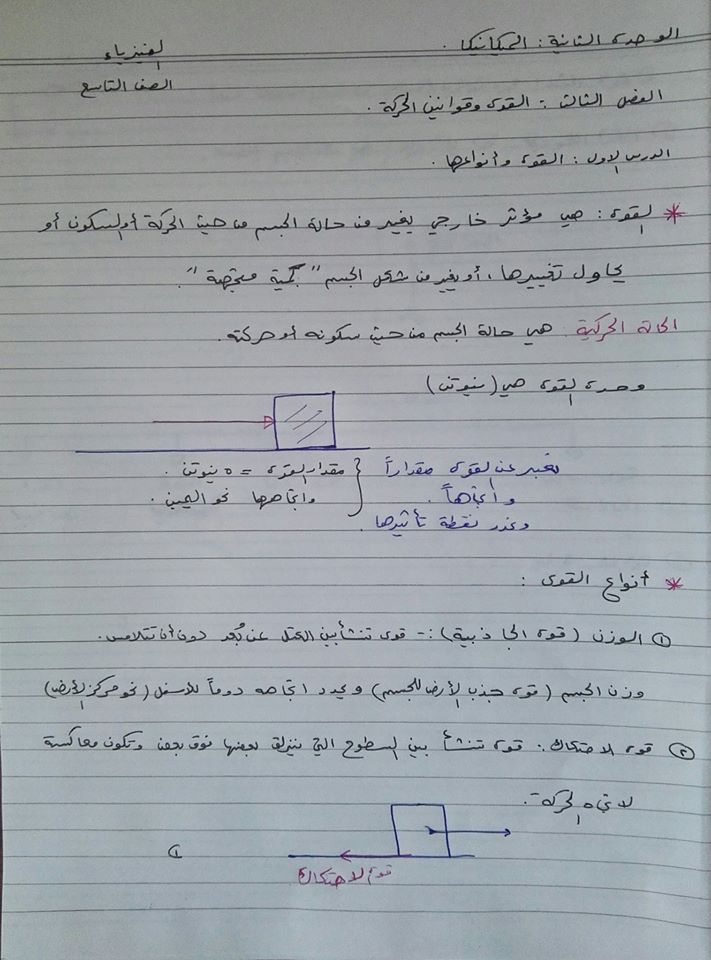 الوحدة الثانية : الميكانيكا .
الفيزياء
الصف التاسع
الفصل الثالث : القوى وقوانين الحركة .
الدرس الأول : القوة وأنواعها .
* القوة : هي مؤثر خارجي يغير من حالة الجسم من حيث الحركة أو السكون أو
يحاول تغييرها ، أو يغير من شكل الجسم " كمية متجهة " .
الحالة الحركية هي حالة الجسم من حيث سكونه أو حركته .
وحدة القوة هي ( نيوتن )
نعبر عن القوة مقداراً } مقدار القوة = ٥ نيوتن .
واتجاهاً . واتجاهها نحو اليمين .
وعند نقطة تأثيرها .
* أنواع القوى :
① الوزن ( قوة الجاذبية ) :- قوى تنشأ بين الكتل عن بُعد دون أن تتلامس .
وزن الجسم ( قوة جذب الأرض للجسم ) ويحدد اتجاهه دوماً للأسفل ( نحو مركز الأرض )
② قوة الاحتكاك : قوة تنشأ بين السطوح التي ينزلق بعضها فوق بعض وتكون معاكسة
لاتجاه الحركة .
قوة الاحتكاك